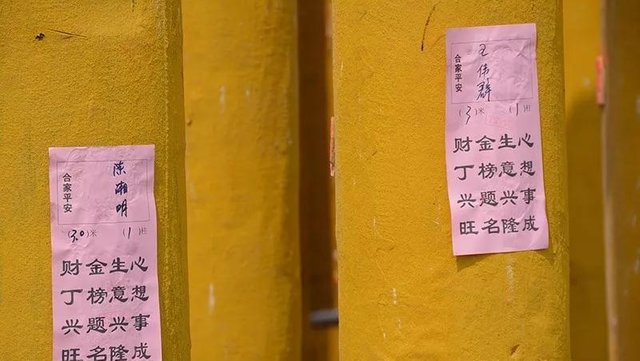 陈湘明
合家平安
(3.0)米 (1)班
心想事成
生意兴隆
金榜题名
财丁兴旺
王伟群
合家平安
(3)米 (1)班
心想事成
生意兴隆
金榜题名
财丁兴旺